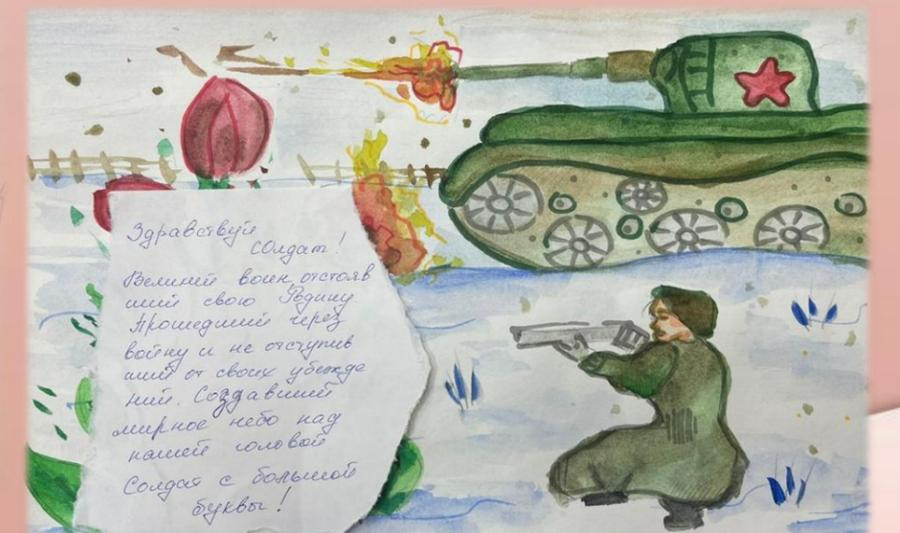 Здравствуй
Солдат!
Великий воин отстояв
ший свою Родину
Прошедший через
войну и не отступив
ший от своих убежде
ний. Создавший
мирное небо над
нашей головой
Солдат с большой
буквы!